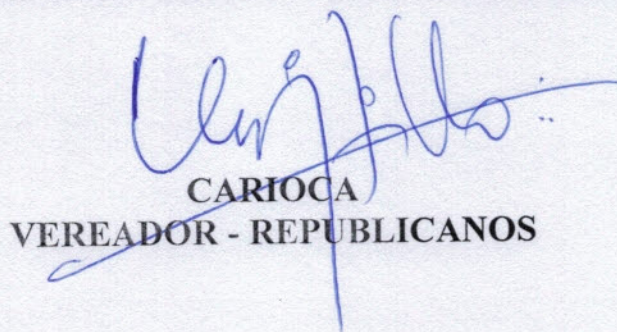 CARIOCA
VEREADOR - REPUBLICANOS